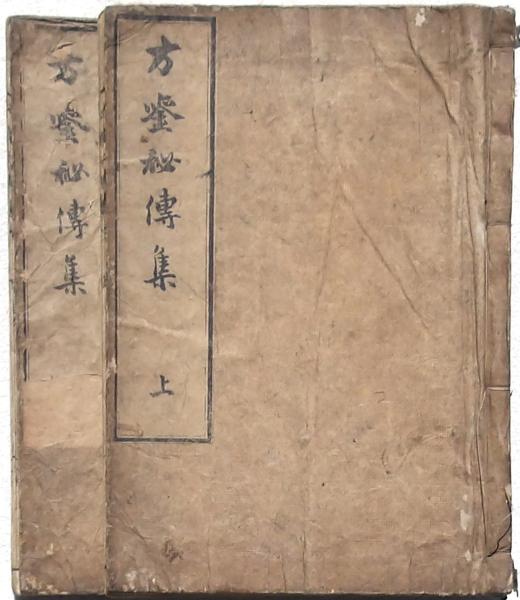 方鑒秘傳集 上
方鑒秘傳集